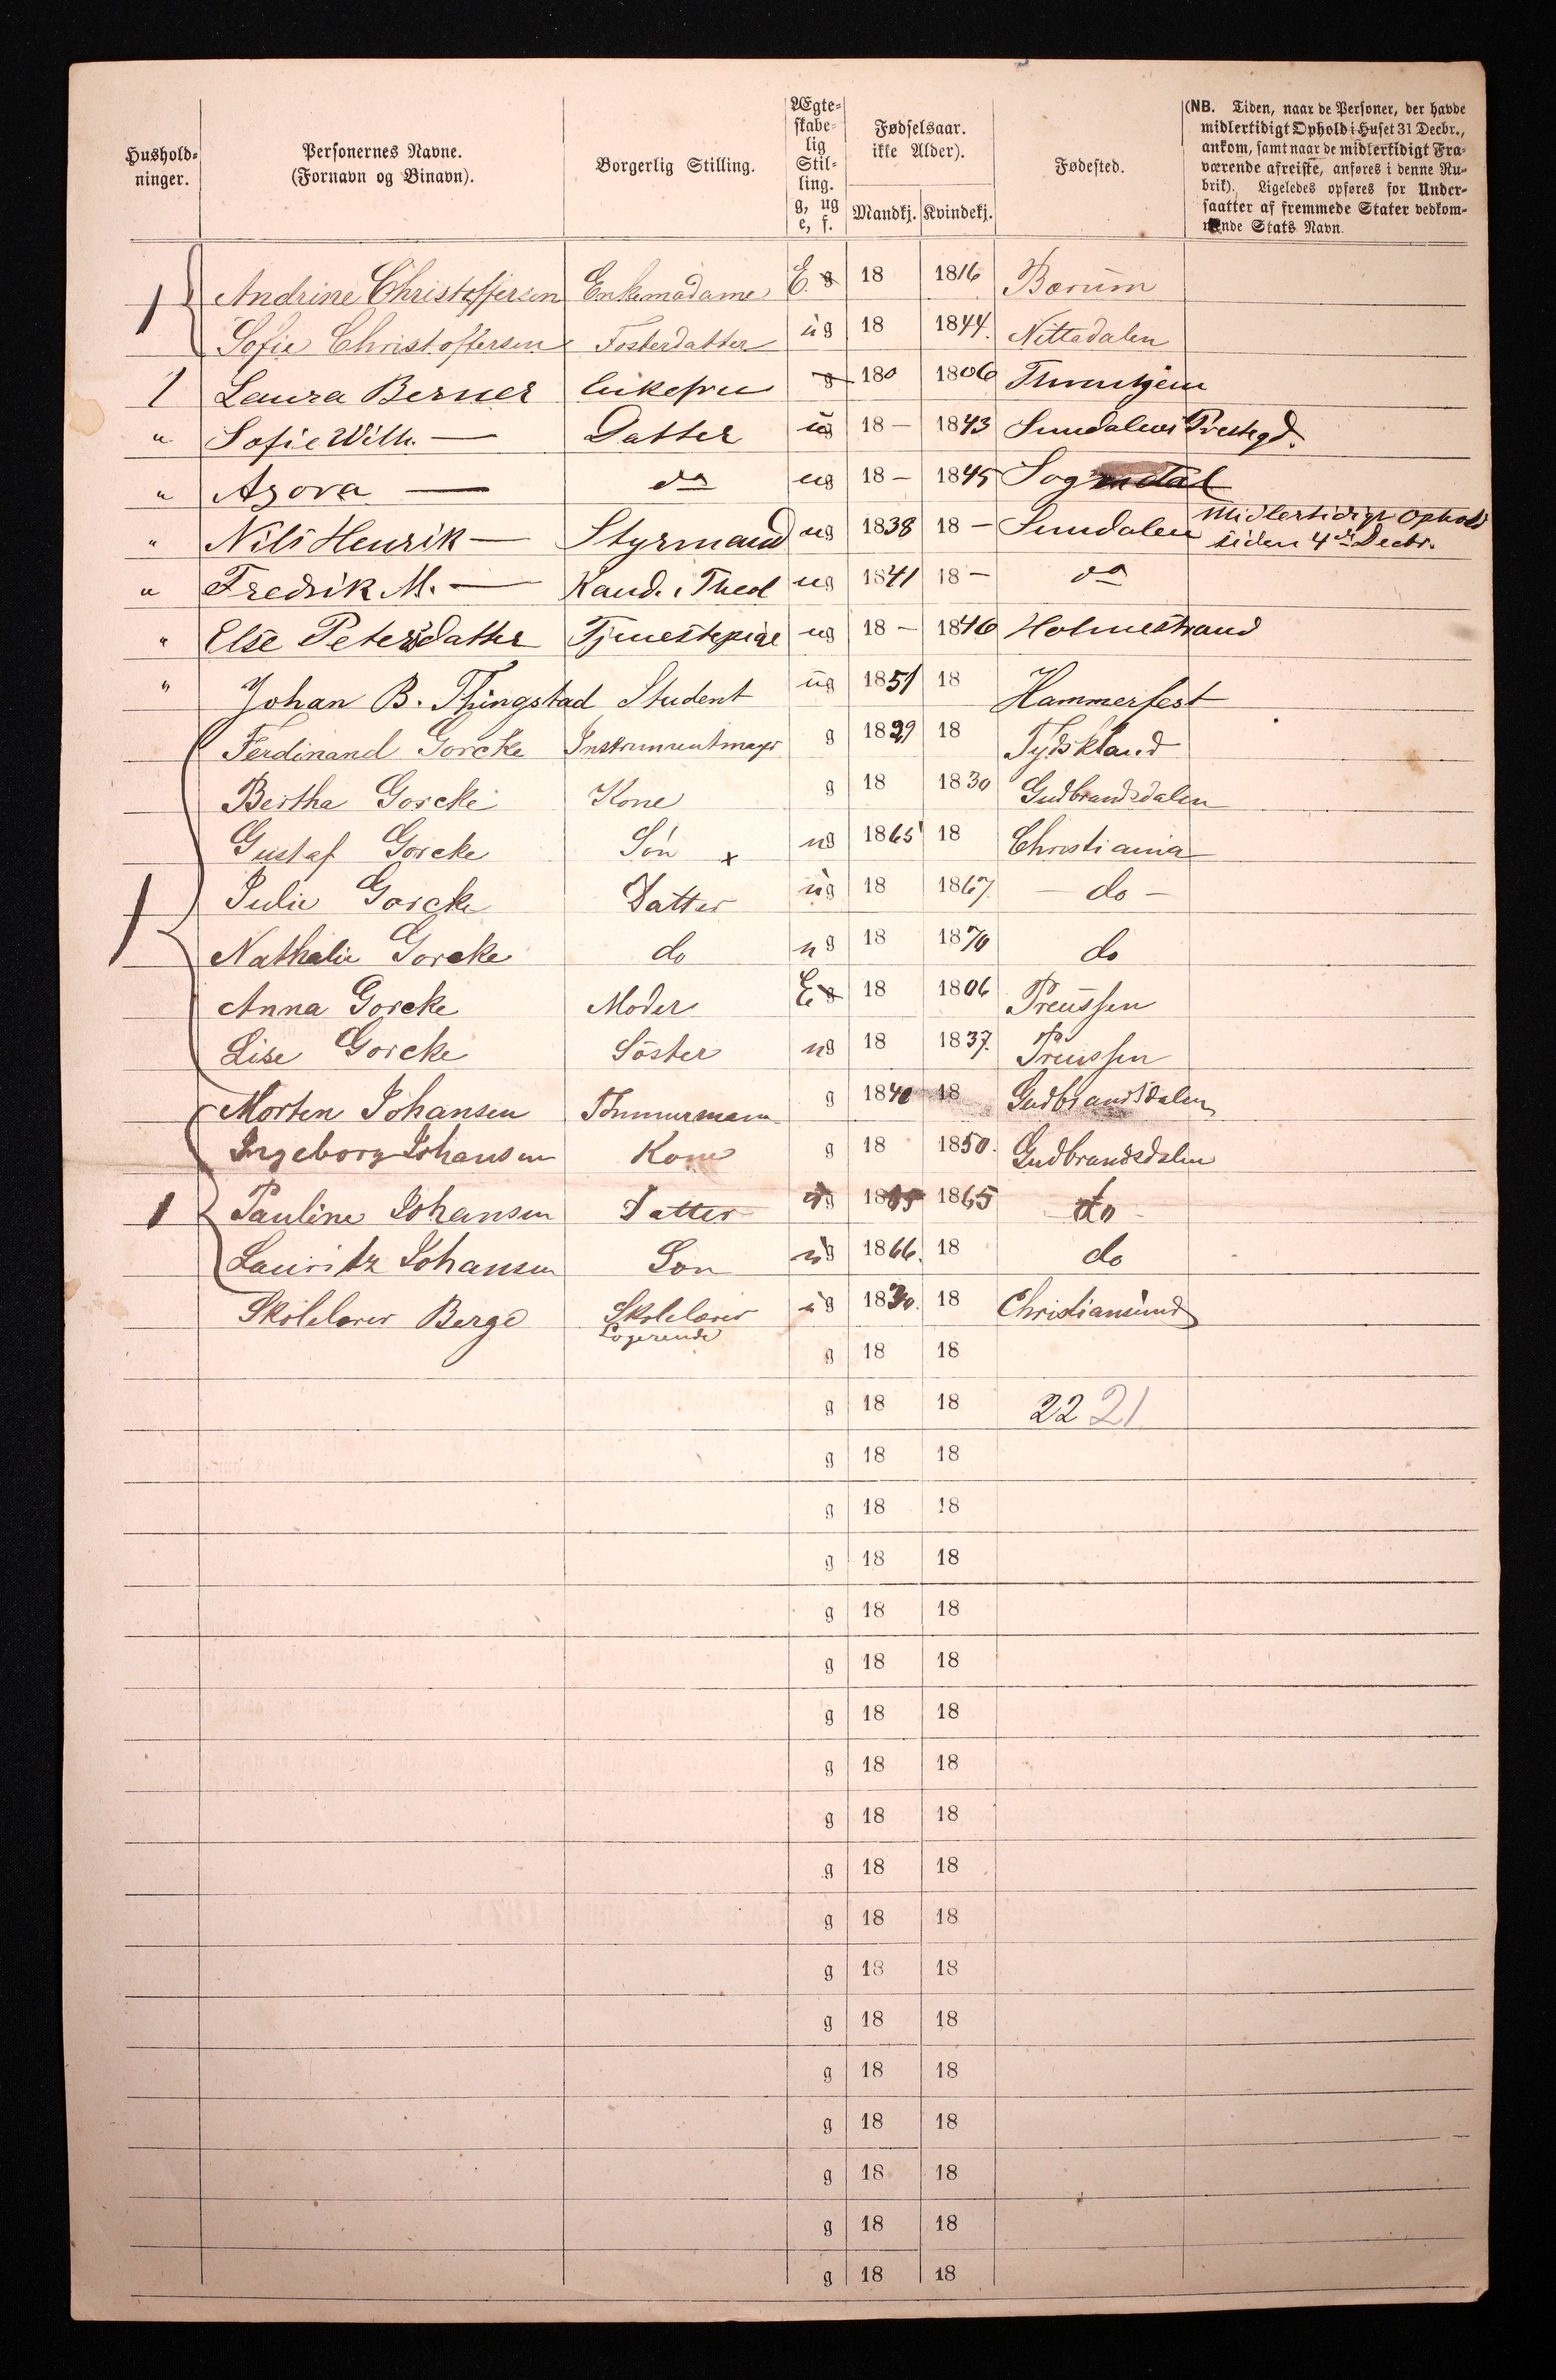 Hushold-
ninger.
Personernes Navne.
(Fornavn og Binavn).
Borgerlig Stilling.
Ægte-
skabe-
lig
Stil-
ling.
g, ug
e, f.
Fødselsaar.
ikke Alder).
Mandkj. Kvindekj.
Fødested.
(NB. Tiden, naar de Personer, der havde
midlertidigt Ophold i Huset 31 Decbr.,
ankom, samt naar de midlertidigt Fra-
værende afreiste, anføres i denne Ru-
brik). Ligeledes opføres for Under-
saatter af fremmede Stater vedkom-
mende Stats Navn.
1 Andrine Christoffersen Enkemadame E. g 18 1816 Bærum
Sofie Christoffersen Fosterdatter ug 18 1844. Nittedalen
1 Laura Berner Enkefru g 180 1806 Thronhjem
" Sofie Wilh. — Datter ug 18 — 1843 Sundalens Prestegd.
" Asora — do ug 18 — 1845 Sogndal
" Nils Henrik — Styrmand ug 1838 18 — Sundalen Midlertidigt Ophold
siden 4de Decbr.
" Fredrik M. — Kand. i Theol ug 1841 18 — do
" Else Petersdatter Tjenestepige ug 18 — 1846 Holmestrand
" Johan B. Thingstad Student ug 1851 18 Hammerfest
Ferdinand Gorcke Instrumentmager g 1829 18 Tydskland
Bertha Gorcke Kone g 18 1830 Gudbrandsdalen
Gustaf Gorcke Søn x ug 1865 18 Christiania
1 Julie Gorcke Datter ug 18 1867. — do —
Nathalie Gorcke do ug 18 1870 do
Anna Gorcke Moder E g 18 1806 Preussen
Lise Gorcke Söster ug 18 1837. Preussen
Morten Johansen Tömmermann g 1840 18 Gudbrandsdalen
Ingeborg Johansen Kone g 18 1850. Gudbrandsdalen
1 Pauline Johansen Datter ug 18 1865 do
Lauritz Johansen Son ug 1866. 18 do
Skolelærer Berge Skolelærer ug 1830. 18 Christiansund
Logerende
g 18 18
g 18 18 22 21
g 18 18
g 18 18
g 18 18
g 18 18
g 18 18
g 18 18
g 18 18
g 18 18
g 18 18
g 18 18
g 18 18
g 18 18
g 18 18
g 18 18
g 18 18
g 18 18
g 18 18